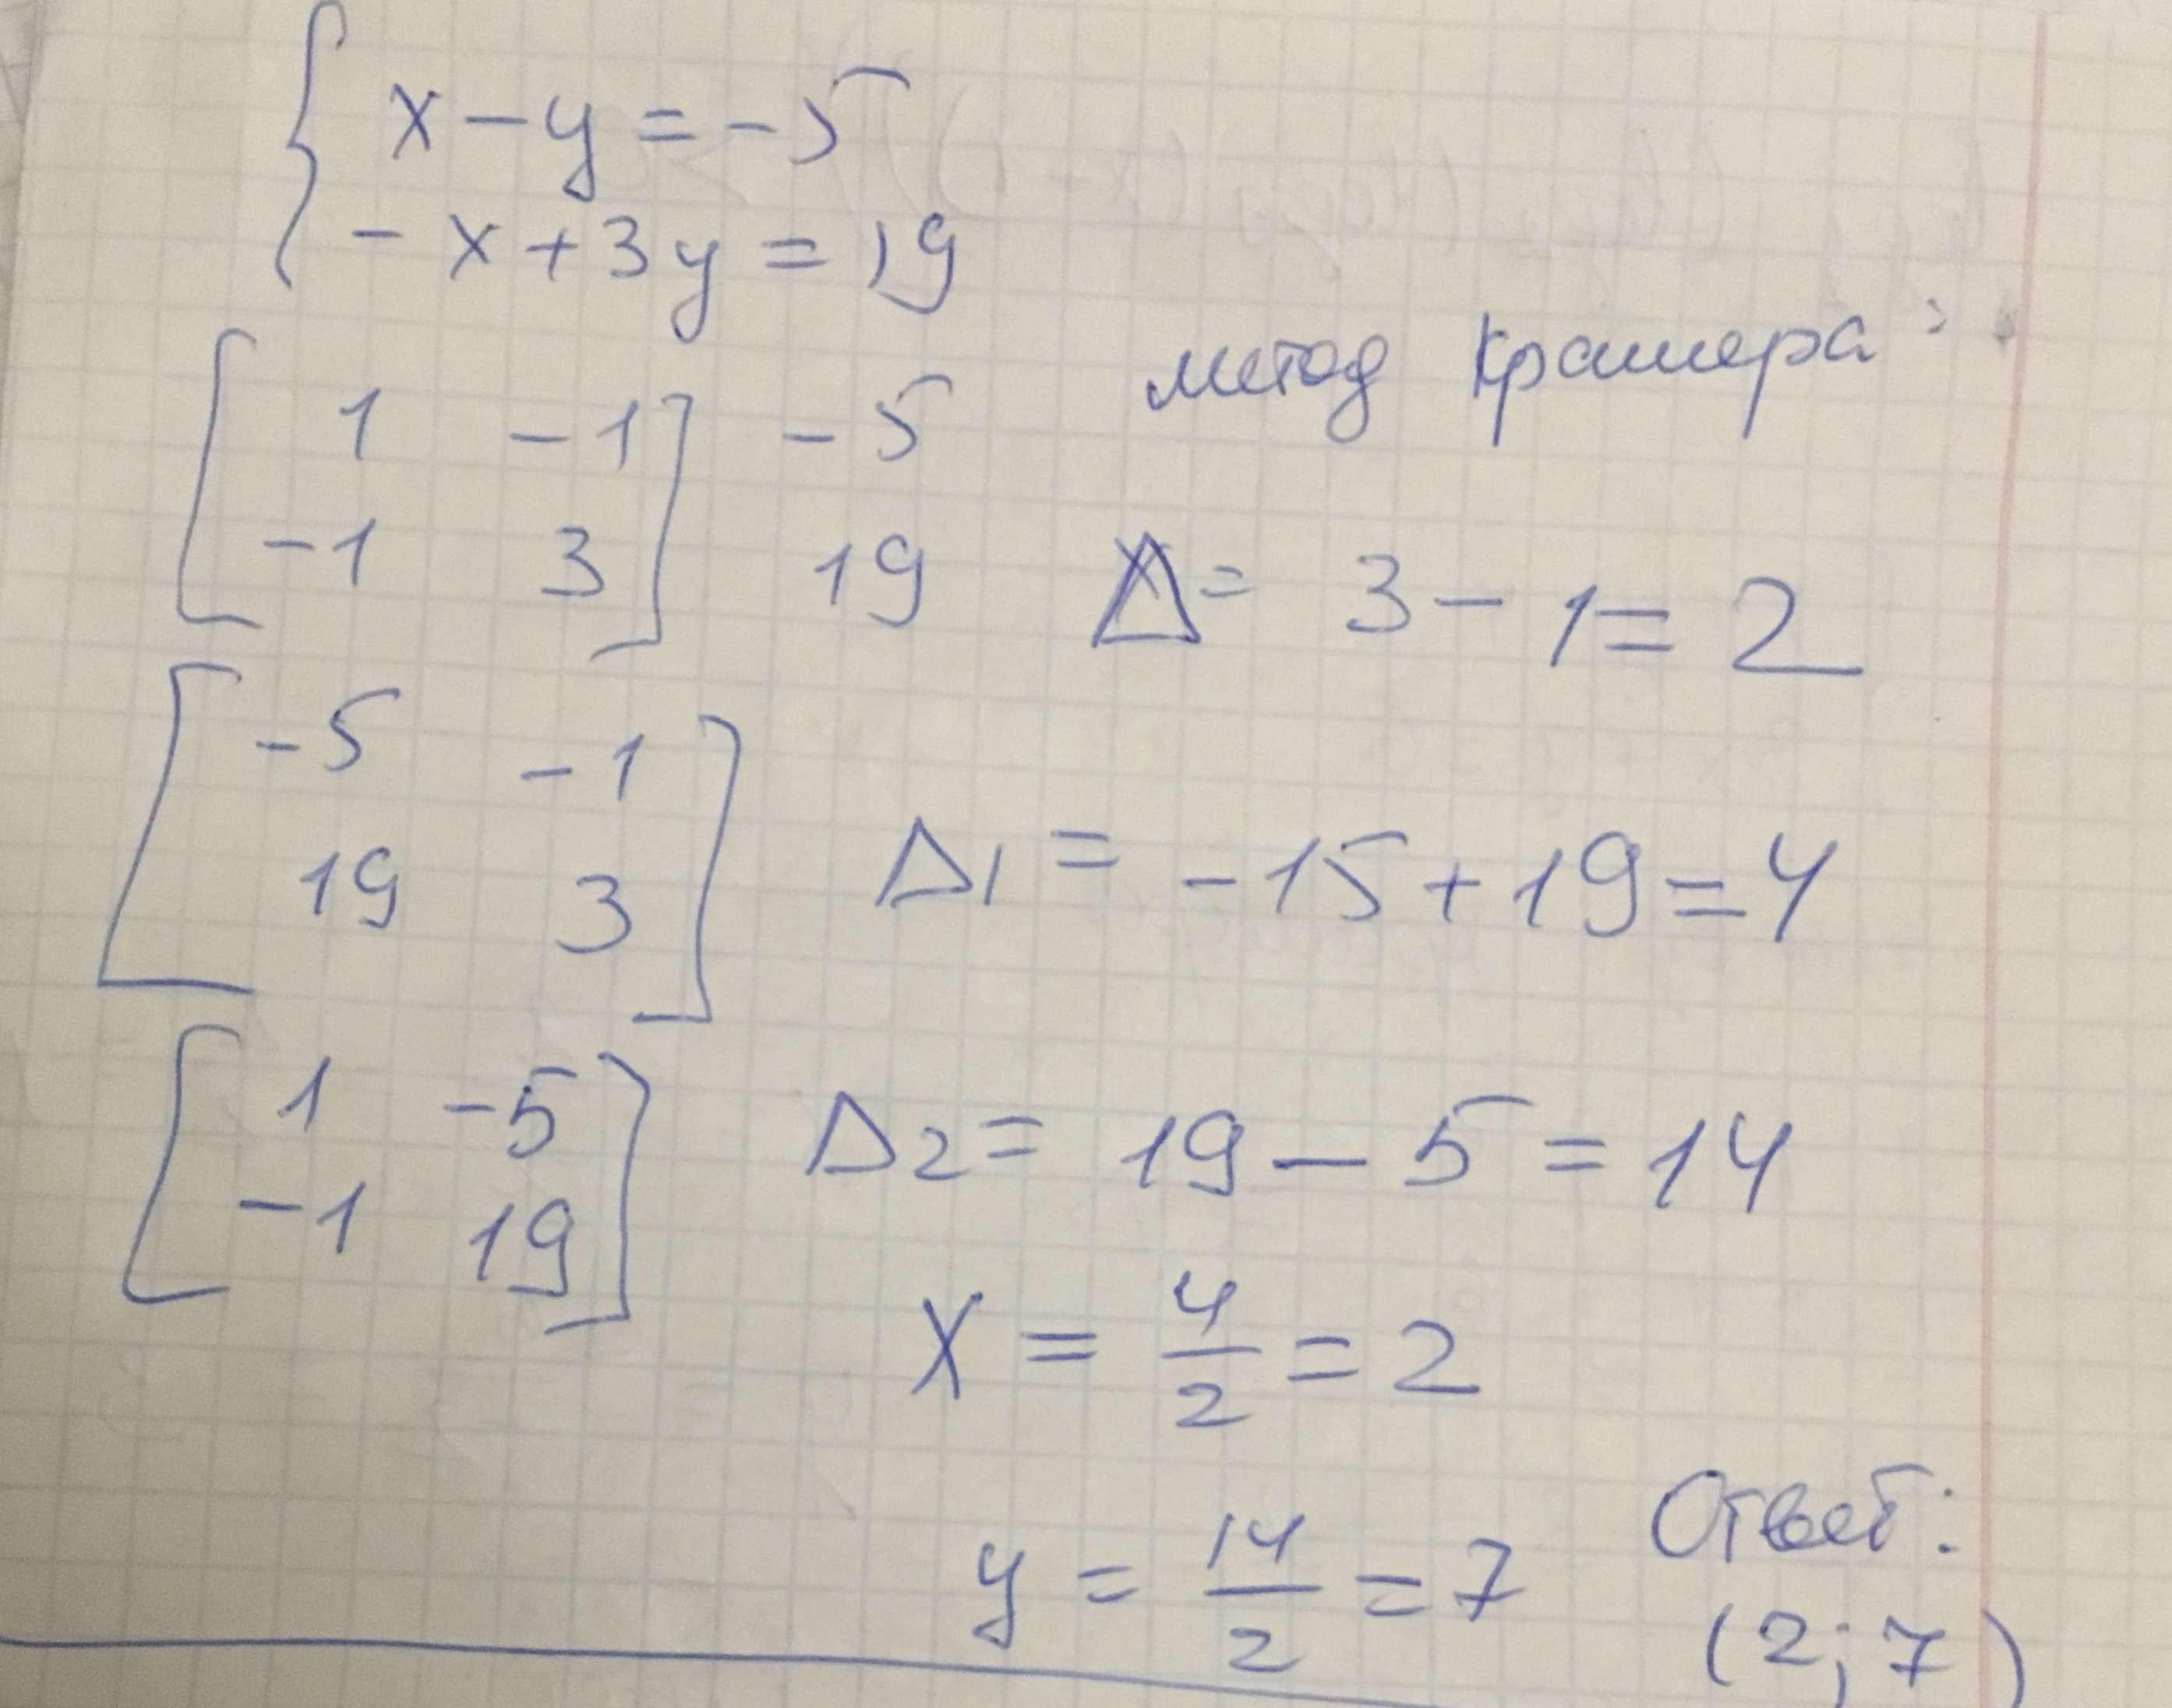 x - y = -5
- x + 3y = 19
метод Крамера:
1 -1 -5
-1 3 19 Δ = 3 - 1 = 2
-5 -1
19 3 Δ1 = -15 + 19 = 4
1 -5 Δ2 = 19 - 5 = 14
-1 19
x = 4/2 = 2
y = 14/2 = 7
Ответ:
(2; 7)